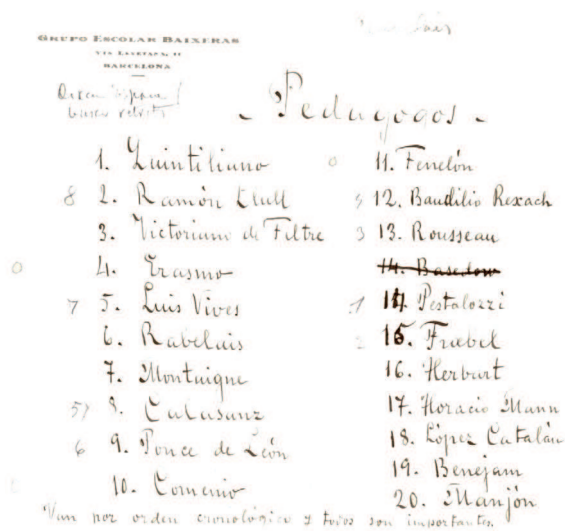 GRUPO ESCOLAR BAIXERAS
VIA LAYETANA, 11
BARCELONA
- Pedagogos -
1. Quintiliano
8 2. Ramón Llull
3. Victorium de Filtre
0 4. Erasmo
7 5. Luis Vives
6. Rabelais
7. Montaigne
5) 8. Calasanz
6 9. Ponce de León
10. Comenio
0 11. Fenelón
12. Baudilio Rexach
3 13. Rousseau
14. Basedow
1 14 Pestalozzi
2 15. Frœbel
16. Herbart
17. Horacio Mann
18. López Catalán
19. Benejam
20. Manjón
Van por orden cronológico y todos son importantes